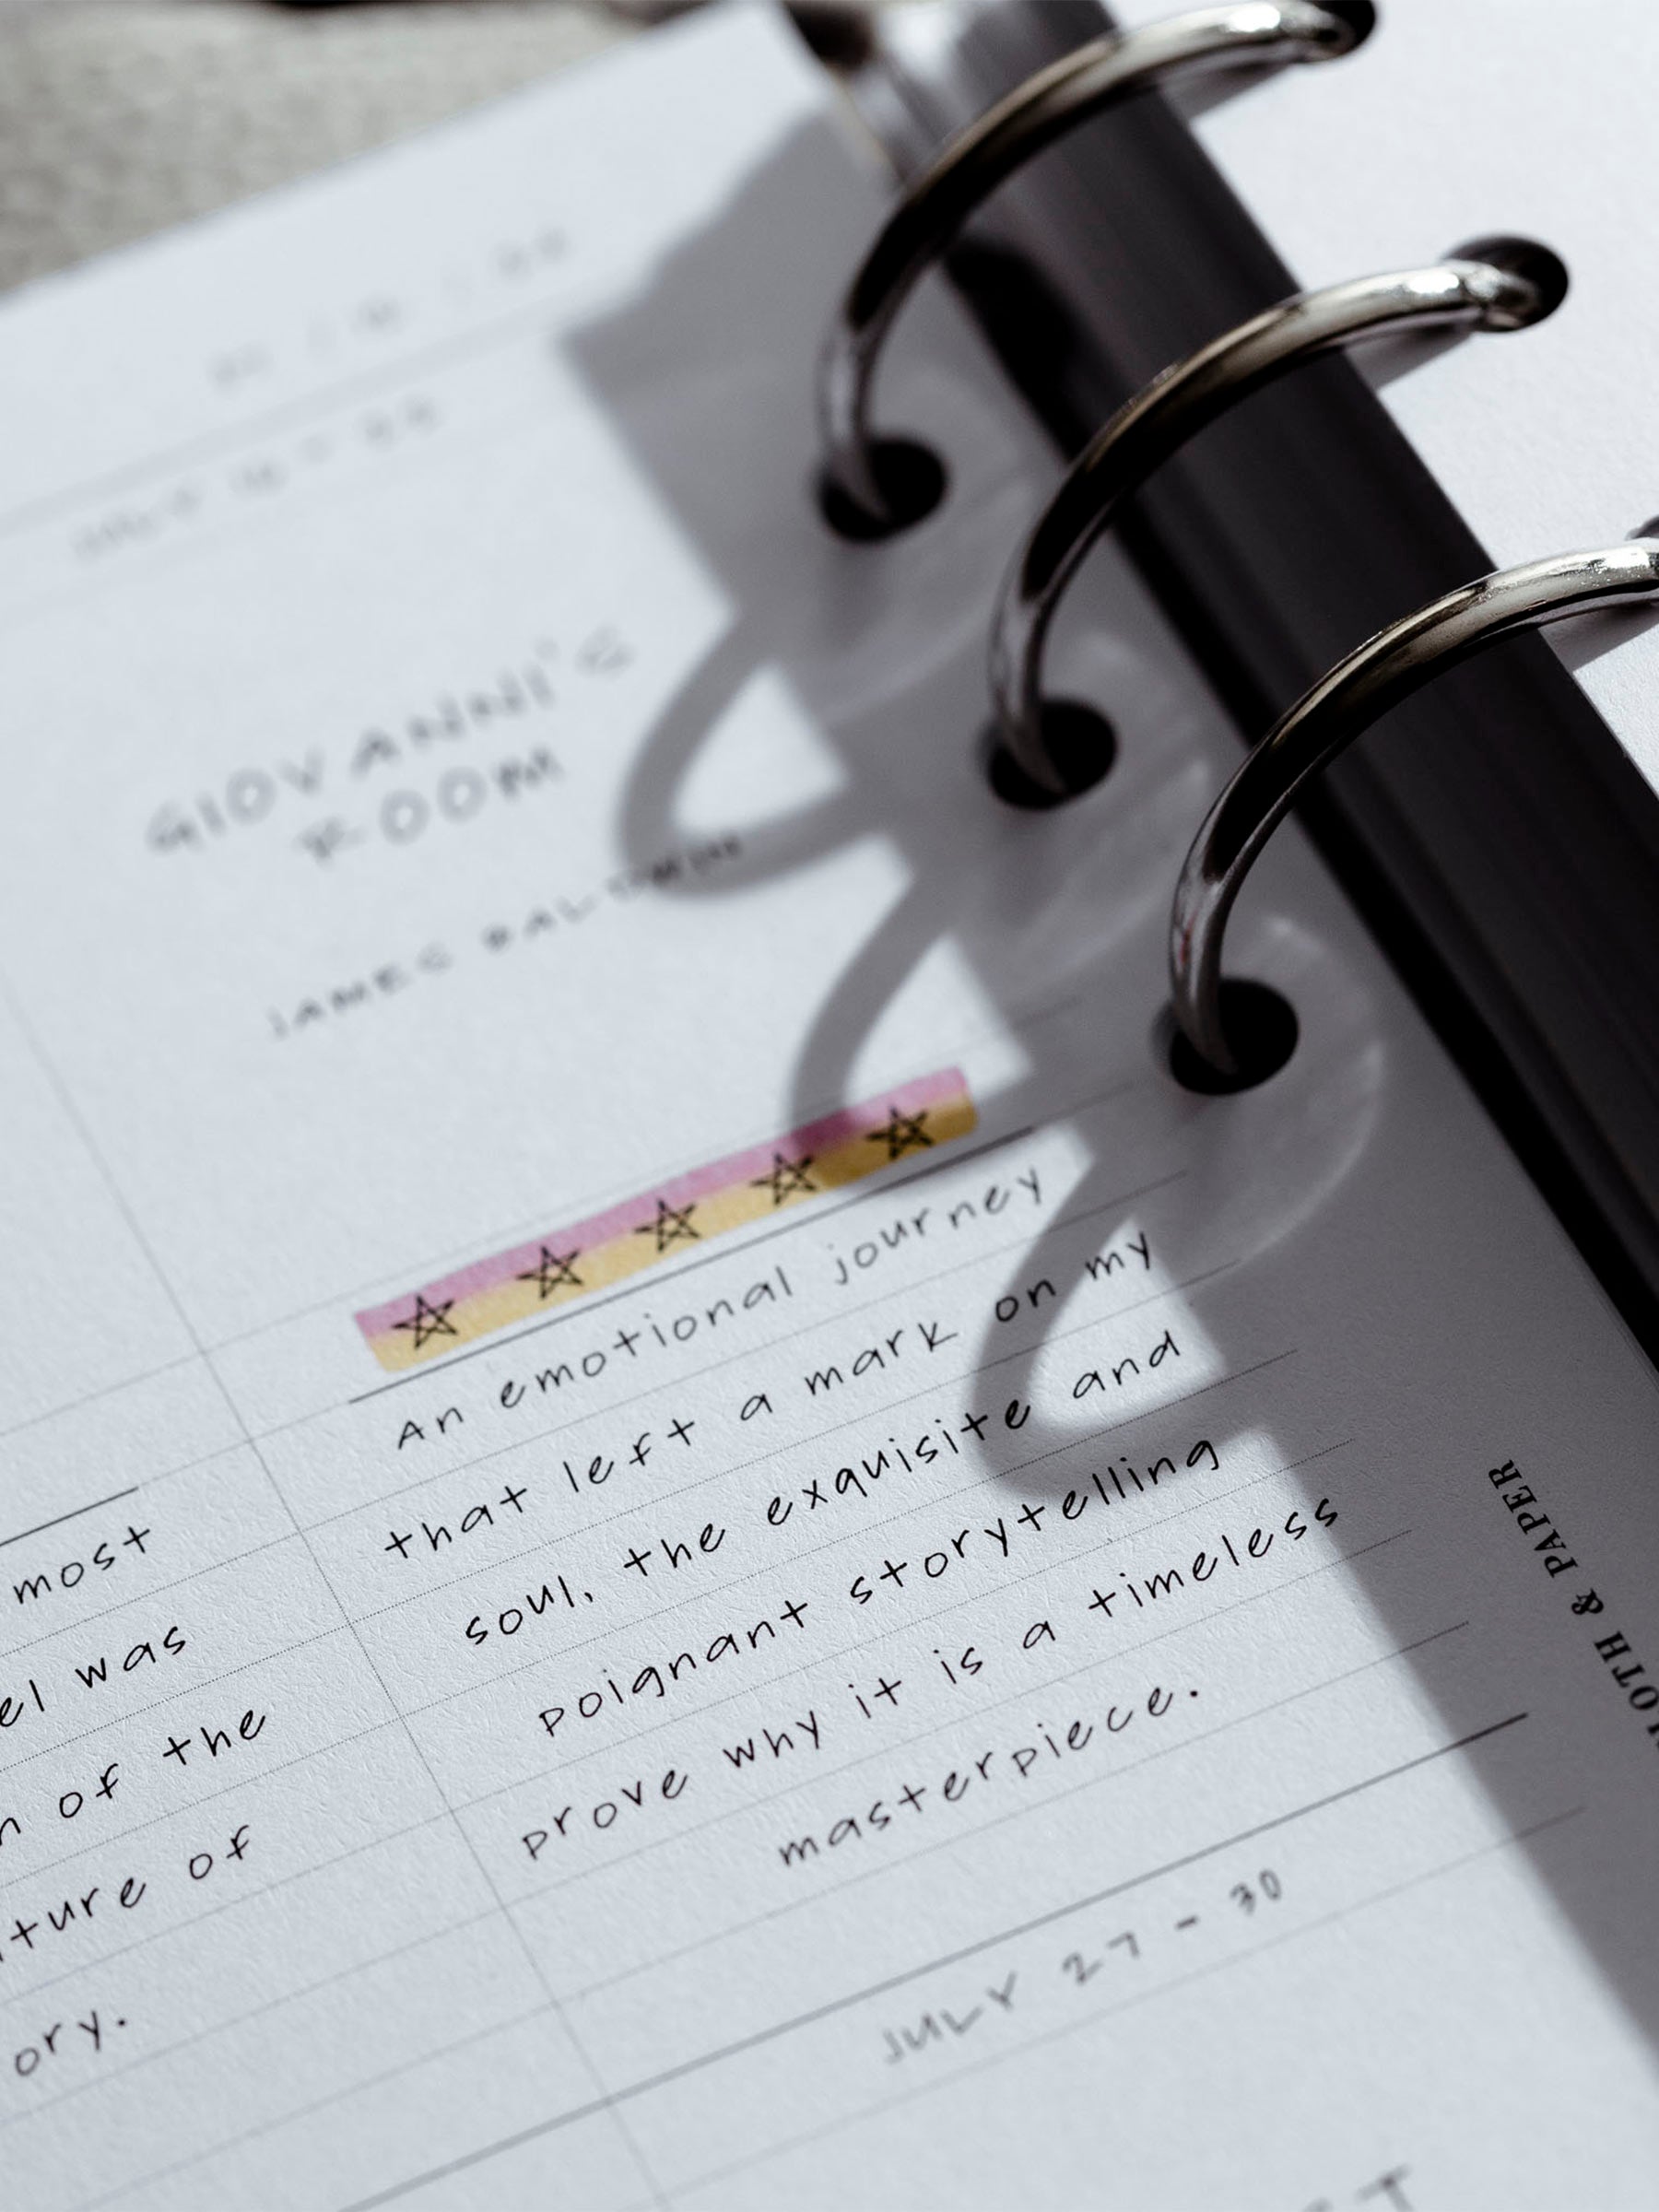 GIOVANNI'S
ROOM
JAMES BALDWIN
An emotional journey
that left a mark on my
soul, the exquisite and
poignant storytelling
prove why it is a timeless
masterpiece.
JULY 27 - 30
most
was
of the
of
OTH & PAPER